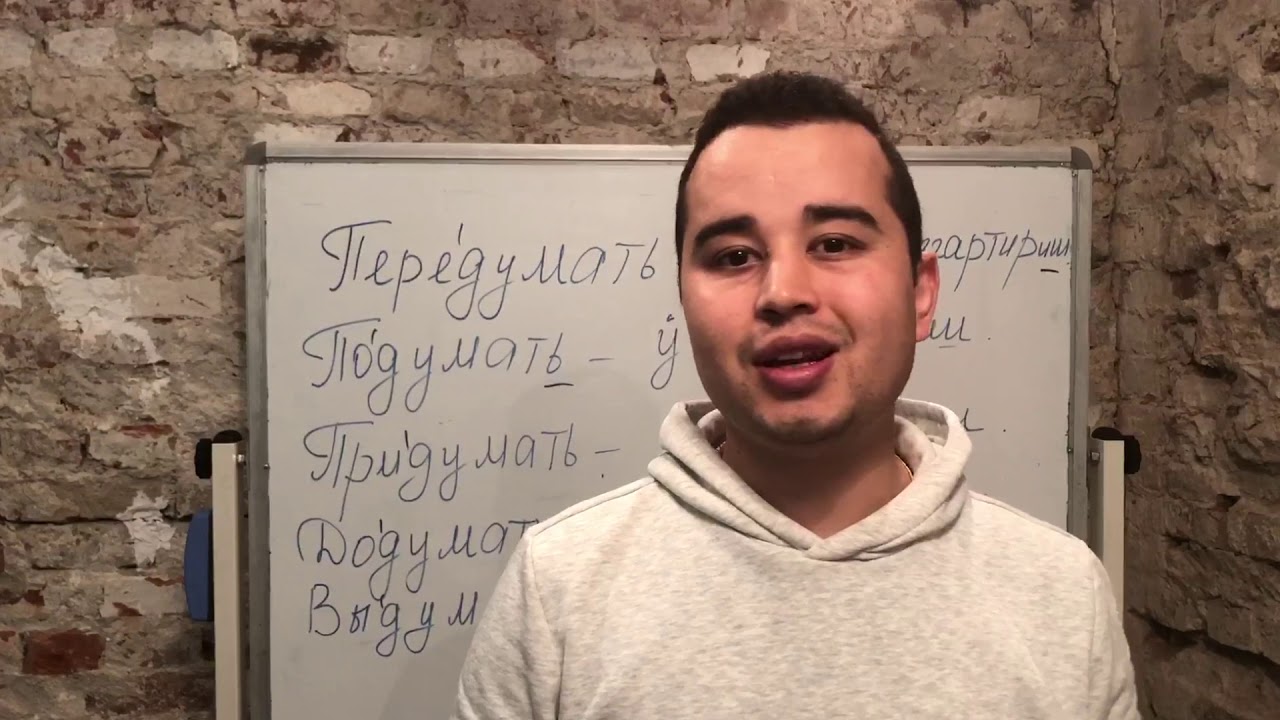 Пере́думать згартириш
По́думать – ў ш.
При́думать -
До́думат
Вы́дум